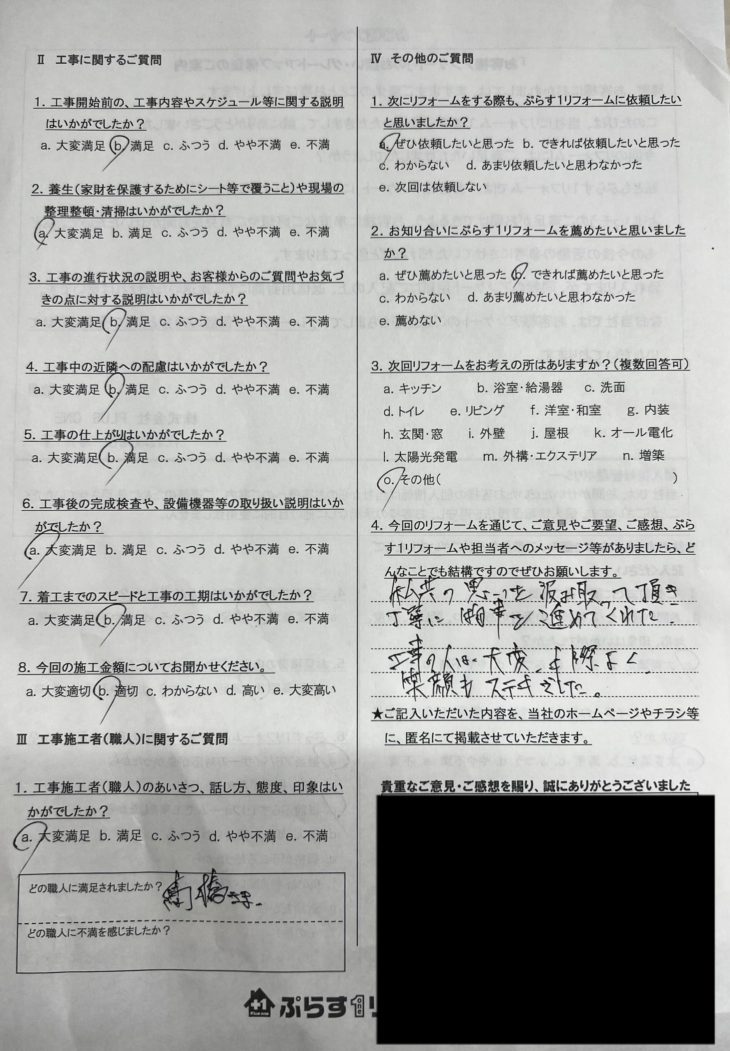 Ⅱ 工事に関するご質問
1. 工事開始前の、工事内容やスケジュール等に関する説明
はいかがでしたか?
a. 大変満足 b. 満足 c. ふつう d. やや不満 e. 不満
2. 養生(家財を保護するためにシート等で覆うこと)や現場の
整理整頓・清掃はいかがでしたか?
a. 大変満足 b. 満足 c. ふつう d. やや不満 e. 不満
3. 工事の進行状況の説明や、お客様からのご質問やお気づ
きの点に対する説明はいかがでしたか?
a. 大変満足 b. 満足 c. ふつう d. やや不満 e. 不満
4. 工事中の近隣への配慮はいかがでしたか?
a. 大変満足 b. 満足 c. ふつう d. やや不満 e. 不満
5. 工事の仕上がりはいかがでしたか?
a. 大変満足 b. 満足 c. ふつう d. やや不満 e. 不満
6. 工事後の完成検査や、設備機器等の取り扱い説明はいか
がでしたか?
a. 大変満足 b. 満足 c. ふつう d. やや不満 e. 不満
7. 着工までのスピードと工事の工期はいかがでしたか?
a. 大変満足 b. 満足 c. ふつう d. やや不満 e. 不満
8. 今回の施工金額についてお聞かせください。
a. 大変適切 b. 適切 c. わからない d. 高い e. 大変高い
Ⅲ 工事施工者(職人)に関するご質問
1. 工事施工者(職人)のあいさつ、話し方、態度、印象はい
かがでしたか?
a. 大変満足 b. 満足 c. ふつう d. やや不満 e. 不満
どの職人に満足されましたか? 高橋さま.
どの職人に不満を感じましたか?
Ⅳ その他のご質問
1. 次にリフォームをする際も、ぷらす1リフォームに依頼したい
と思いましたか?
a. ぜひ依頼したいと思った b. できれば依頼したいと思った
c. わからない d. あまり依頼したいと思わなかった
e. 次回は依頼しない
2. お知り合いにぷらす1リフォームを薦めたいと思いました
か?
a. ぜひ薦めたいと思った b. できれば薦めたいと思った
c. わからない d. あまり薦めたいと思わなかった
e. 薦めない
3. 次回リフォームをお考えの所はありますか?(複数回答可)
a. キッチン b. 浴室・給湯器 c. 洗面
d. トイレ e. リビング f. 洋室・和室 g. 内装
h. 玄関・窓 i. 外壁 j. 屋根 k. オール電化
l. 太陽光発電 m. 外構・エクステリア n. 増築
o. その他( )
4. 今回のリフォームを通じて、ご意見やご要望、ご感想、ぷら
す1リフォームや担当者へのメッセージ等がありましたら、ど
んなことでも結構ですのでぜひお願いします。
私共の 汲み取って頂き
丁寧に を進めてくれた.
工事の人は 大変 手際よく
笑顔も ステキでした。
★ご記入いただいた内容を、当社のホームページやチラシ等
に、匿名にて掲載させていただきます。
貴重なご意見・ご感想を賜り、誠にありがとうございました
+1 ぷらす1リ
one